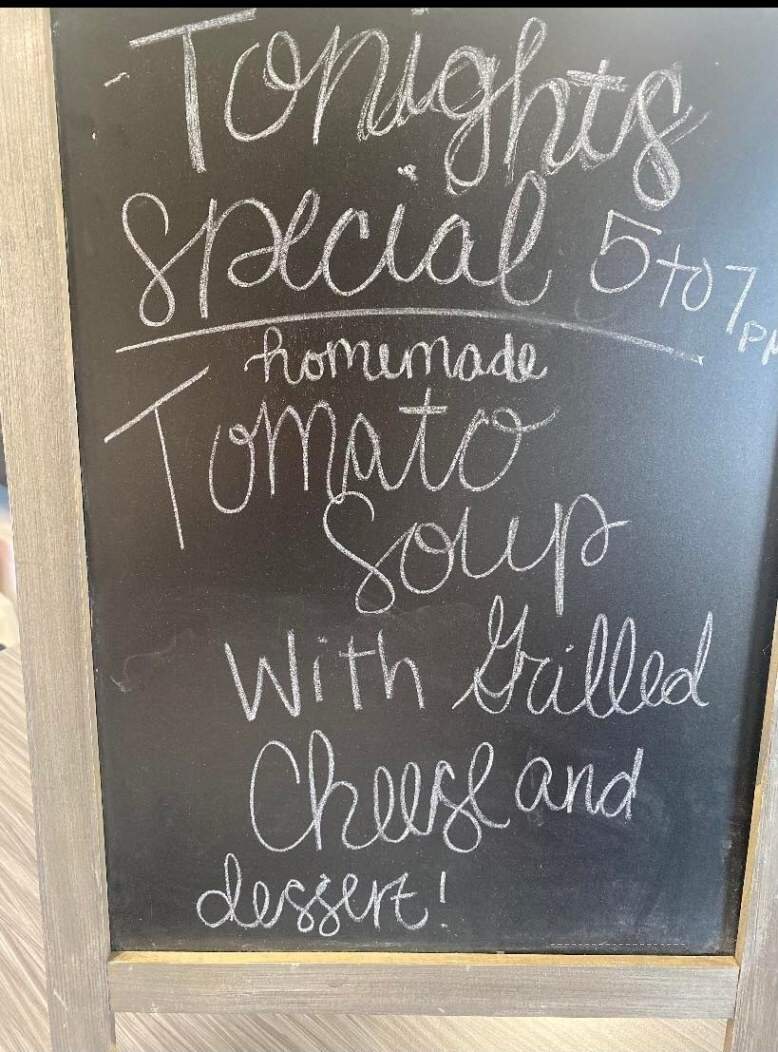 Tonights
special 5 to 7 pm
homemade
Tomato
Soup
With Grilled
Cheese and
dessert!